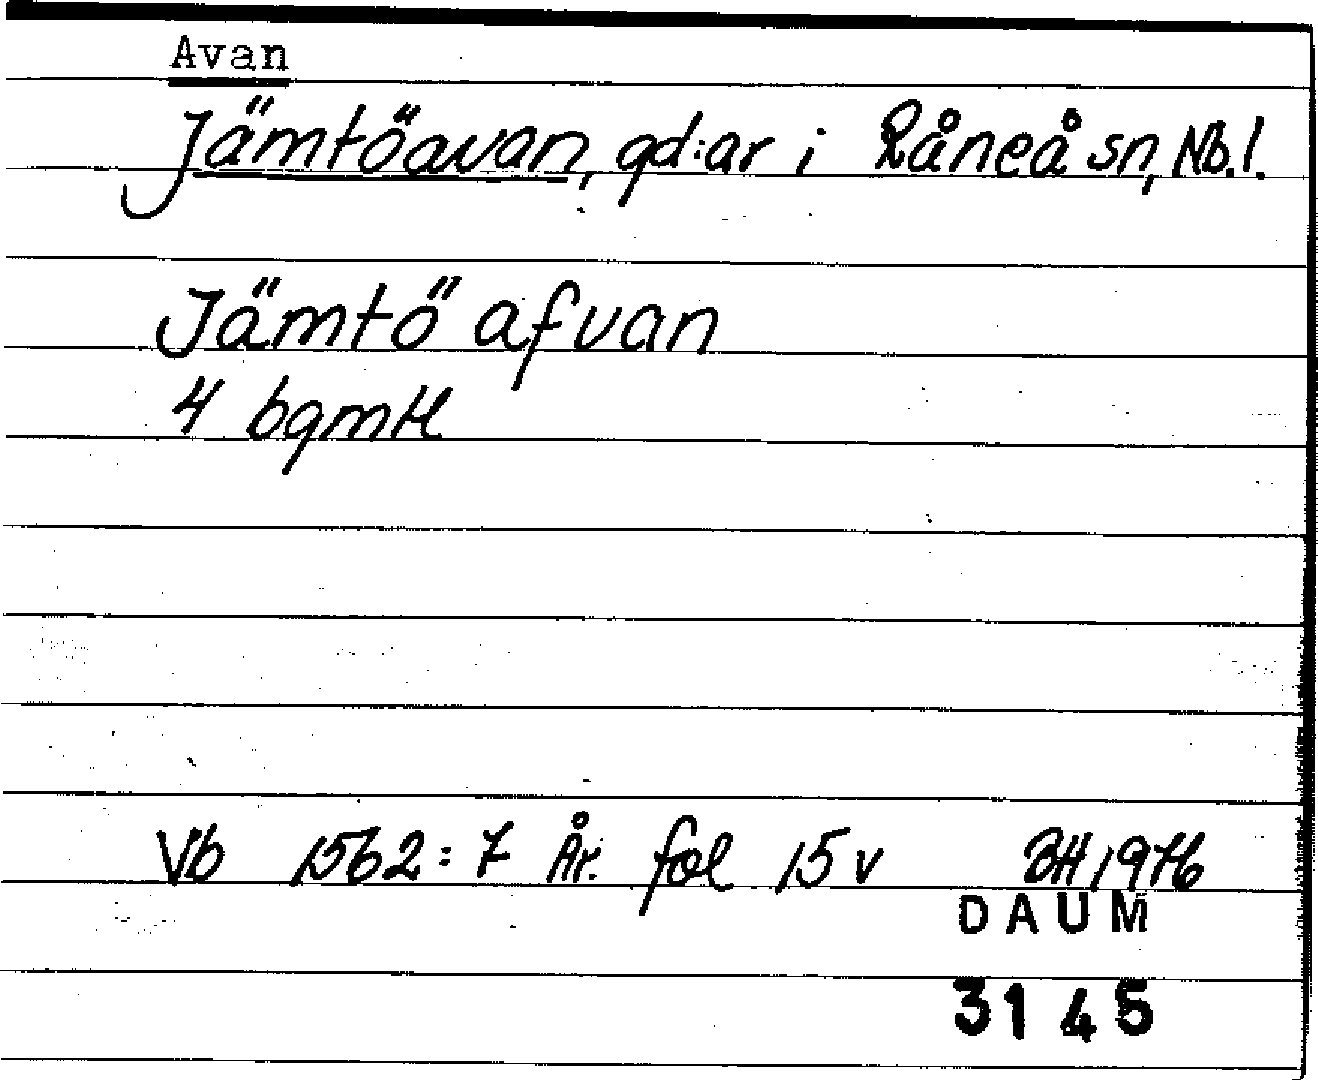 Avan
Jämtöavan, gd:ar i Råneå sn, Nb.l.
Jämtö afvan
4 bgmtl
Vb 1562:7 År. fol 15 v BH 1976
DAUM
3145